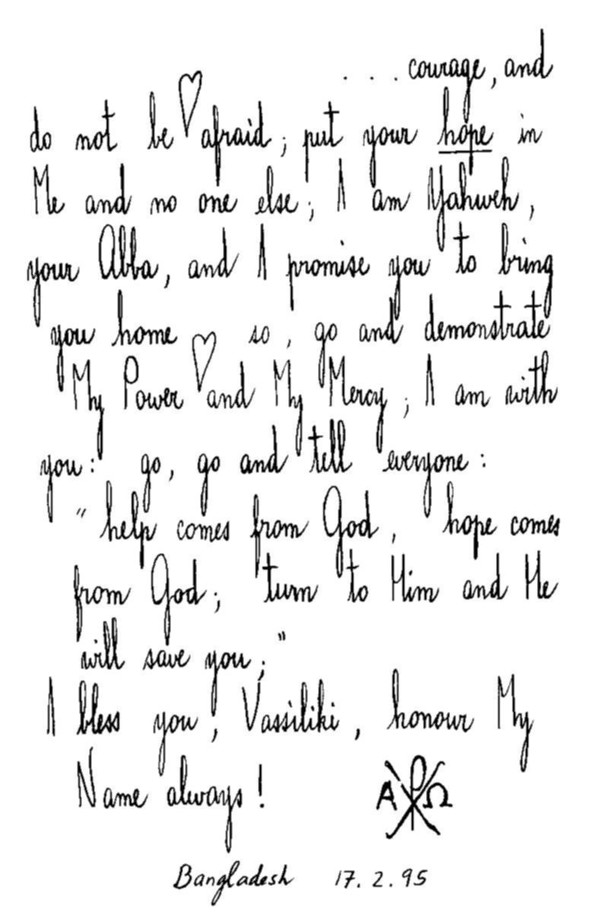 . . . courage, and
do not be ♡ afraid; put your hope in
Me and no one else; I am Yahweh,
your Abba, and I promise you to bring
you home ♡ so, go and demonstrate
My Power and My Mercy; I am with
you: go, go and tell everyone:
"help comes from God, hope comes
from God; turn to Him and He
will save you;"
I bless you, Vassiliki, honour My
Name always!
Α ☧ Ω
Bangladesh 17.2.95